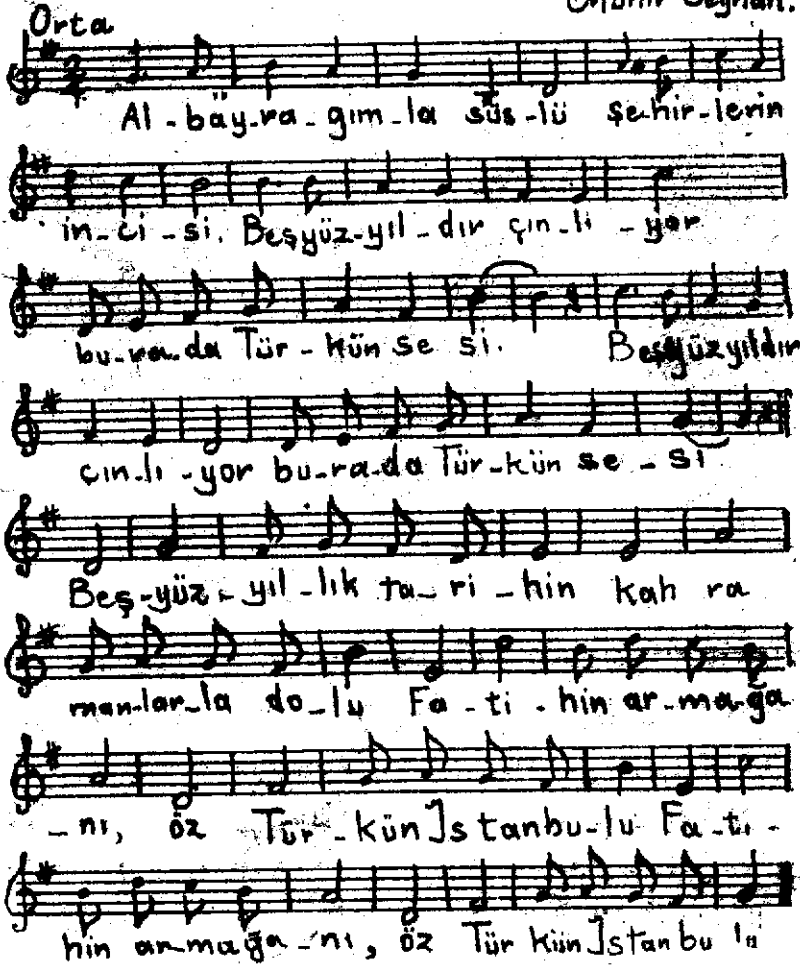 Orta
Al-bay-ra-gım-la süs-lü şe-hir-lerin
in-ci-si. Beşyüz-yıl-dır çın-lı-yor
bu-ra-da Tür-kün se si. Beşyüzyıldır
çın-lı-yor bu-ra-da Tür-kün se-si
Beş-yüz-yıl-lık ta-ri-hin kah ra
man-lar-la do-lu Fa-ti-hin ar-ma-ğa
-nı, öz Tür-kün İstanbu-lu Fa-ti-
hin ar-ma-ğa-nı, öz Tür kün İstan bu lu